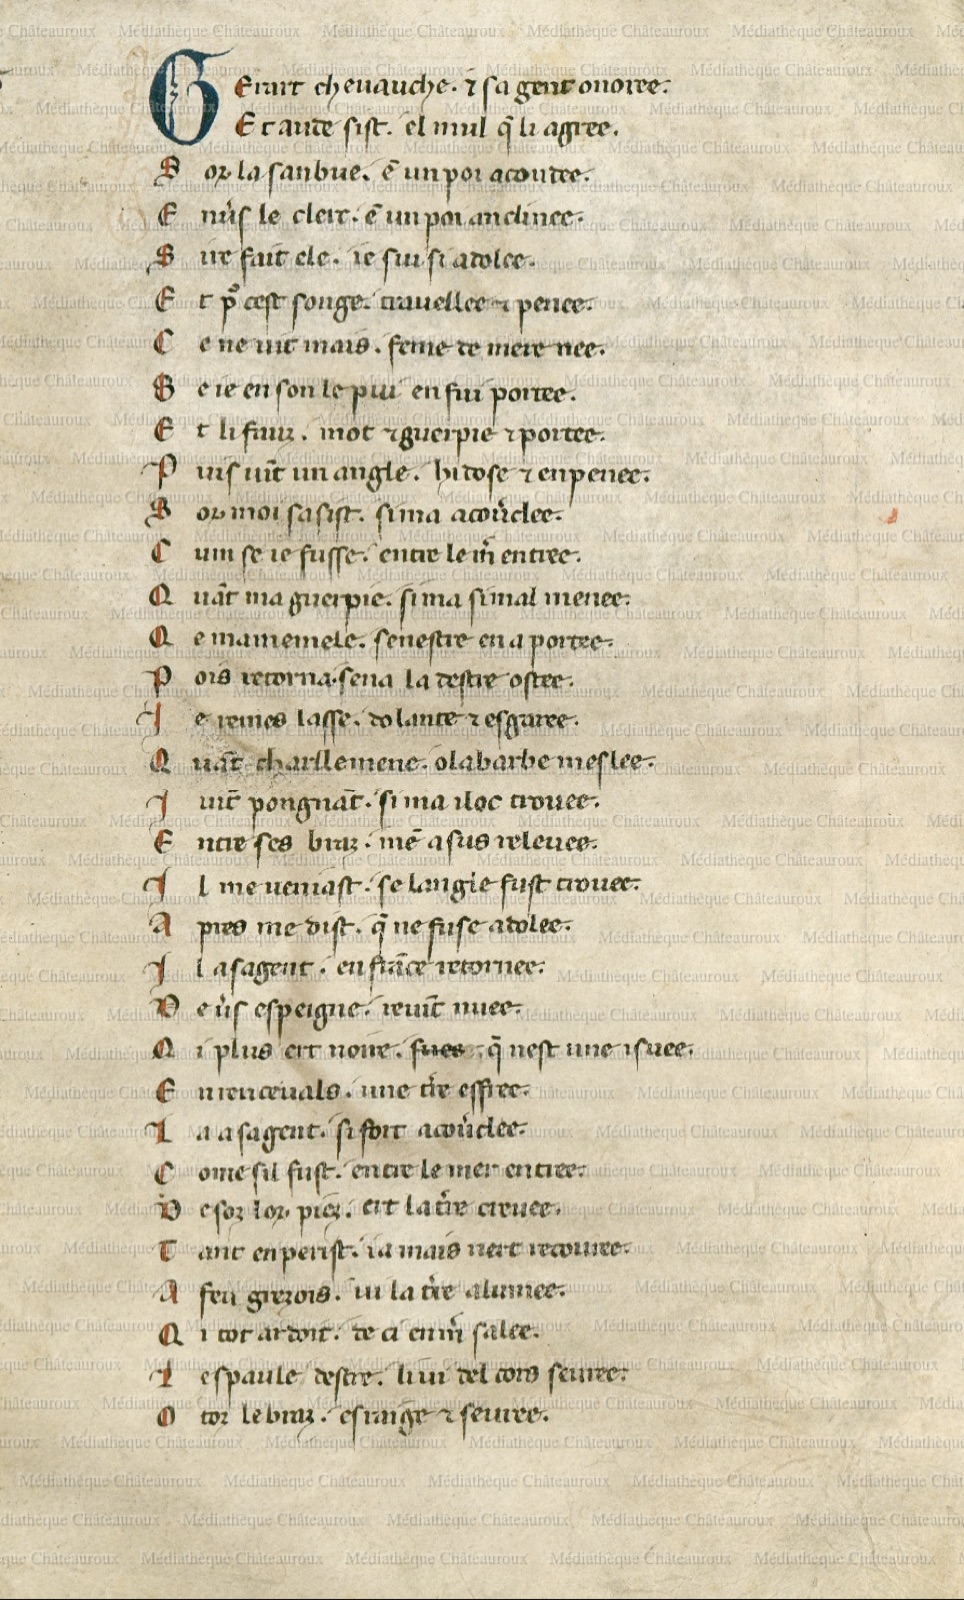 GErart cheuauche. ⁊ sa gent onoree.
Et aude sist. el mul q̃ li agree.
Sor la sanbue. ẽ un poi acoutee.
Enu̾s le clerc. ẽ un poi anclinee.
Sire fait ele. ie sui si adolee.
Et p̾ cest songe. trauellee ⁊ penee.
Ce ne uit mais. feme de mere nee.
Se ie en son le pui en fui portee.
Et li faus. mot ⁊ guerpie ⁊ portee.
Puis uit̃ un angle. hidose ⁊ enpenee.
Sor moi sasist. si ma acou̾clee.
Cum se ie fusse. entre le m̾ entree.
Quãt ma guerpie. si ma si mal menee.
Qe ma memele. senestre en a portee.
Pois retorna. sena la destre ostee.
Ie remes lasse. dolante ⁊ esgaree.
Quãt charllemene. o la barbe meslee.
I uit̃ pongnãt. si ma iloc trouee.
Entre ses braz. mẽ a sus releuee.
Il me ueniast. se langle fust trouee.
Apres me dist. q̃ ne fuse adolee.
Il a sa gent. en frãce retornee.
De u̾s espeigne. reuit̃ nuee.
Qi plus ert noire. fues. q̃ nest une isuee.
En renceuals. une t̾re effree.
La a sa gent. si fort acou̾clee.
Come sil fust. entre le mer entree.
Desoz lor piez. ert la t̾re creuee.
Tant en perist. ia mais nert recouree.
A feu grezois. ui la t̾re alumee.
Qi tot ardoit. de ci en m̾ salee.
Lespaule destre. li ui del cors seuree.
O tot le braz. esraige ⁊ seuree.
Médiathèque Châteauroux